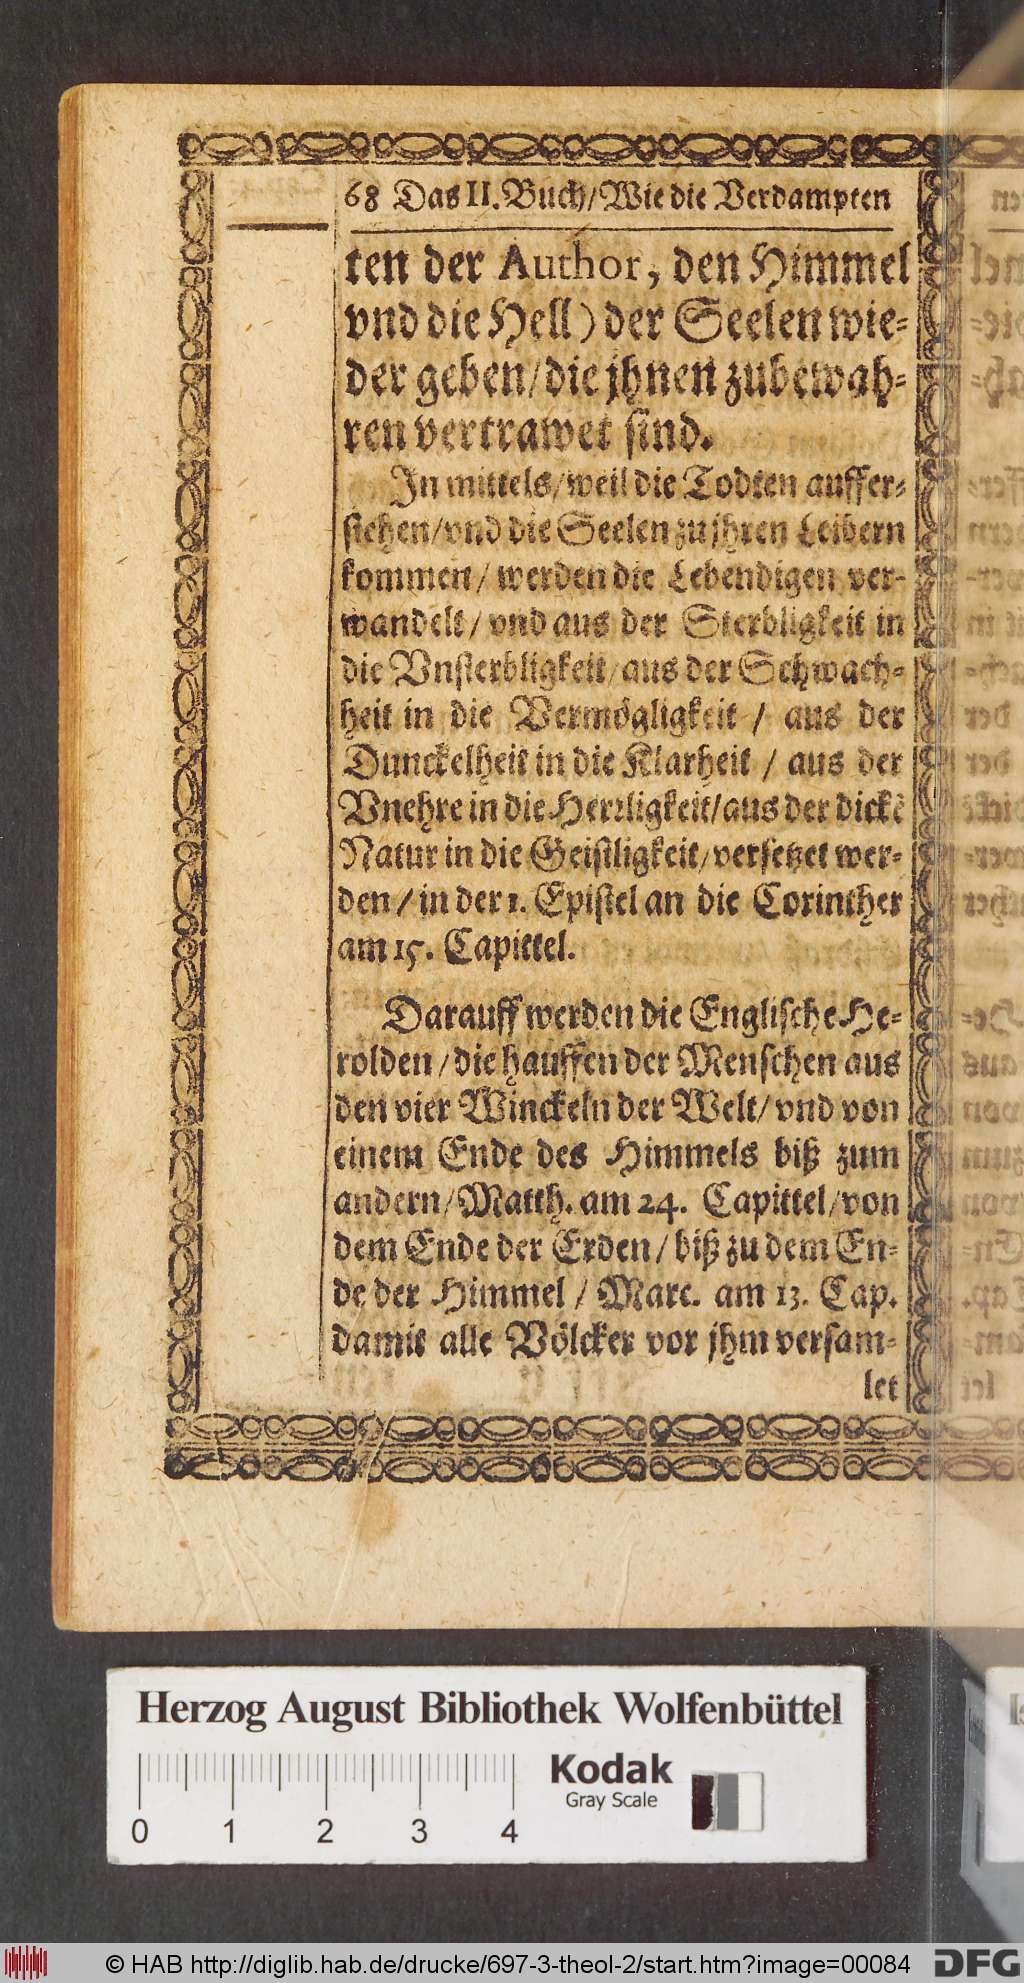 68 Das II. Buch/Wie die Verdampten
ten der Author, den Himmel
vnd die Hell) der Seelen wie-
der geben/die jhnen zubewah-
ren vertrawet sind.
In mittels/weil die Todten auffer-
stehen/vnd die Seelen zu jhren Leibern
kommen/ werden die Lebendigen ver-
wandelt/ vnd aus der Sterbligkeit in
die Vnsterbligkeit/aus der Schwach-
heit in die Vermögligkeit / aus der
Dunckelheit in die Klarheit / aus der
Vnehre in die Herrligkeit/aus der dickẽ
Natur in die Geistligkeit/versetzet wer-
den/in der 1. Epistel an die Corinther
am 15. Capittel.
Darauff werden die Englische He-
rolden/die hauffen der Menschen aus
den vier Winckeln der Welt/vnd von
einem Ende des Himmels biß zum
andern/Matth. am 24. Capittel/von
dem Ende der Erden/biß zu dem En-
de der Himmel / Marc. am 13. Cap.
damit alle Völcker vor jhm versam-
let
Herzog August Bibliothek Wolfenbüttel
Kodak
Gray Scale
0 1 2 3 4
© HAB http://diglib.hab.de/drucke/697-3-theol-2/start.htm?image=00084
DFG